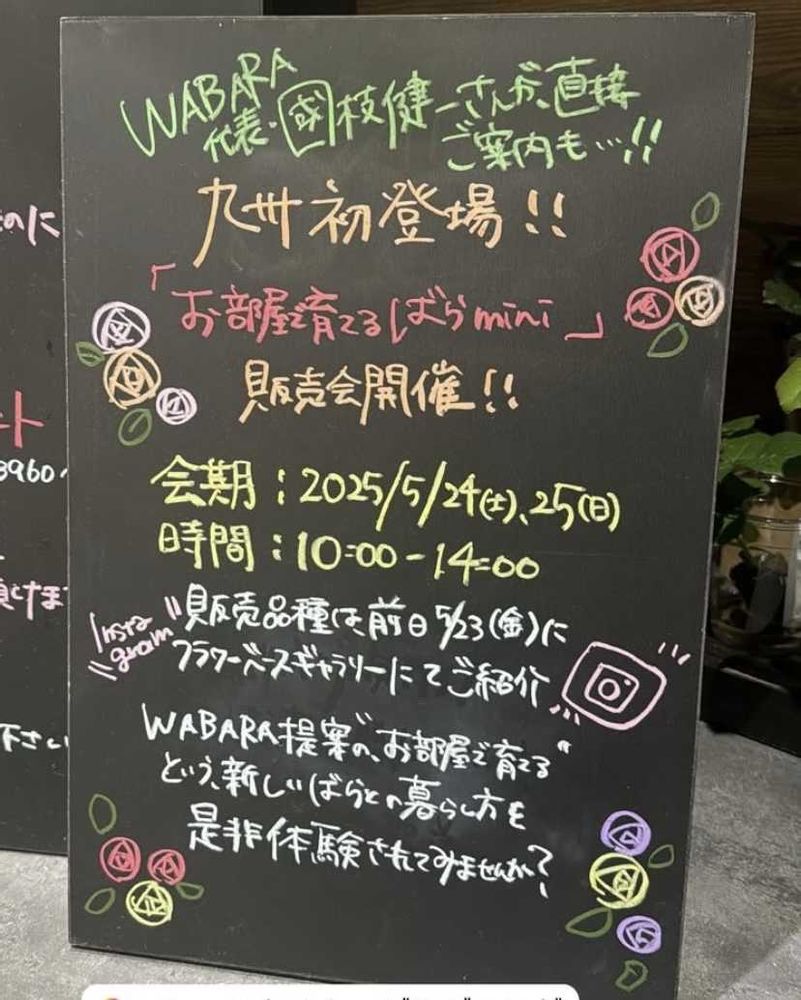 WABARA
代表・國枝健一さんが、直接
ご案内も…!!
九州初登場!!
「お部屋で育てるばらmini」
販売会開催!!
会期:2025/5/24(土)、25(日)
時間:10:00-14:00
Instagram
販売品種は、前日5/23(金)に
フラワーベースギャラリーにてご紹介
WABARA提案の、"お部屋で育てる"
という、新しいばらとの暮らし方を
是非体験されてみませんか?
のに
ート
3960
下さい